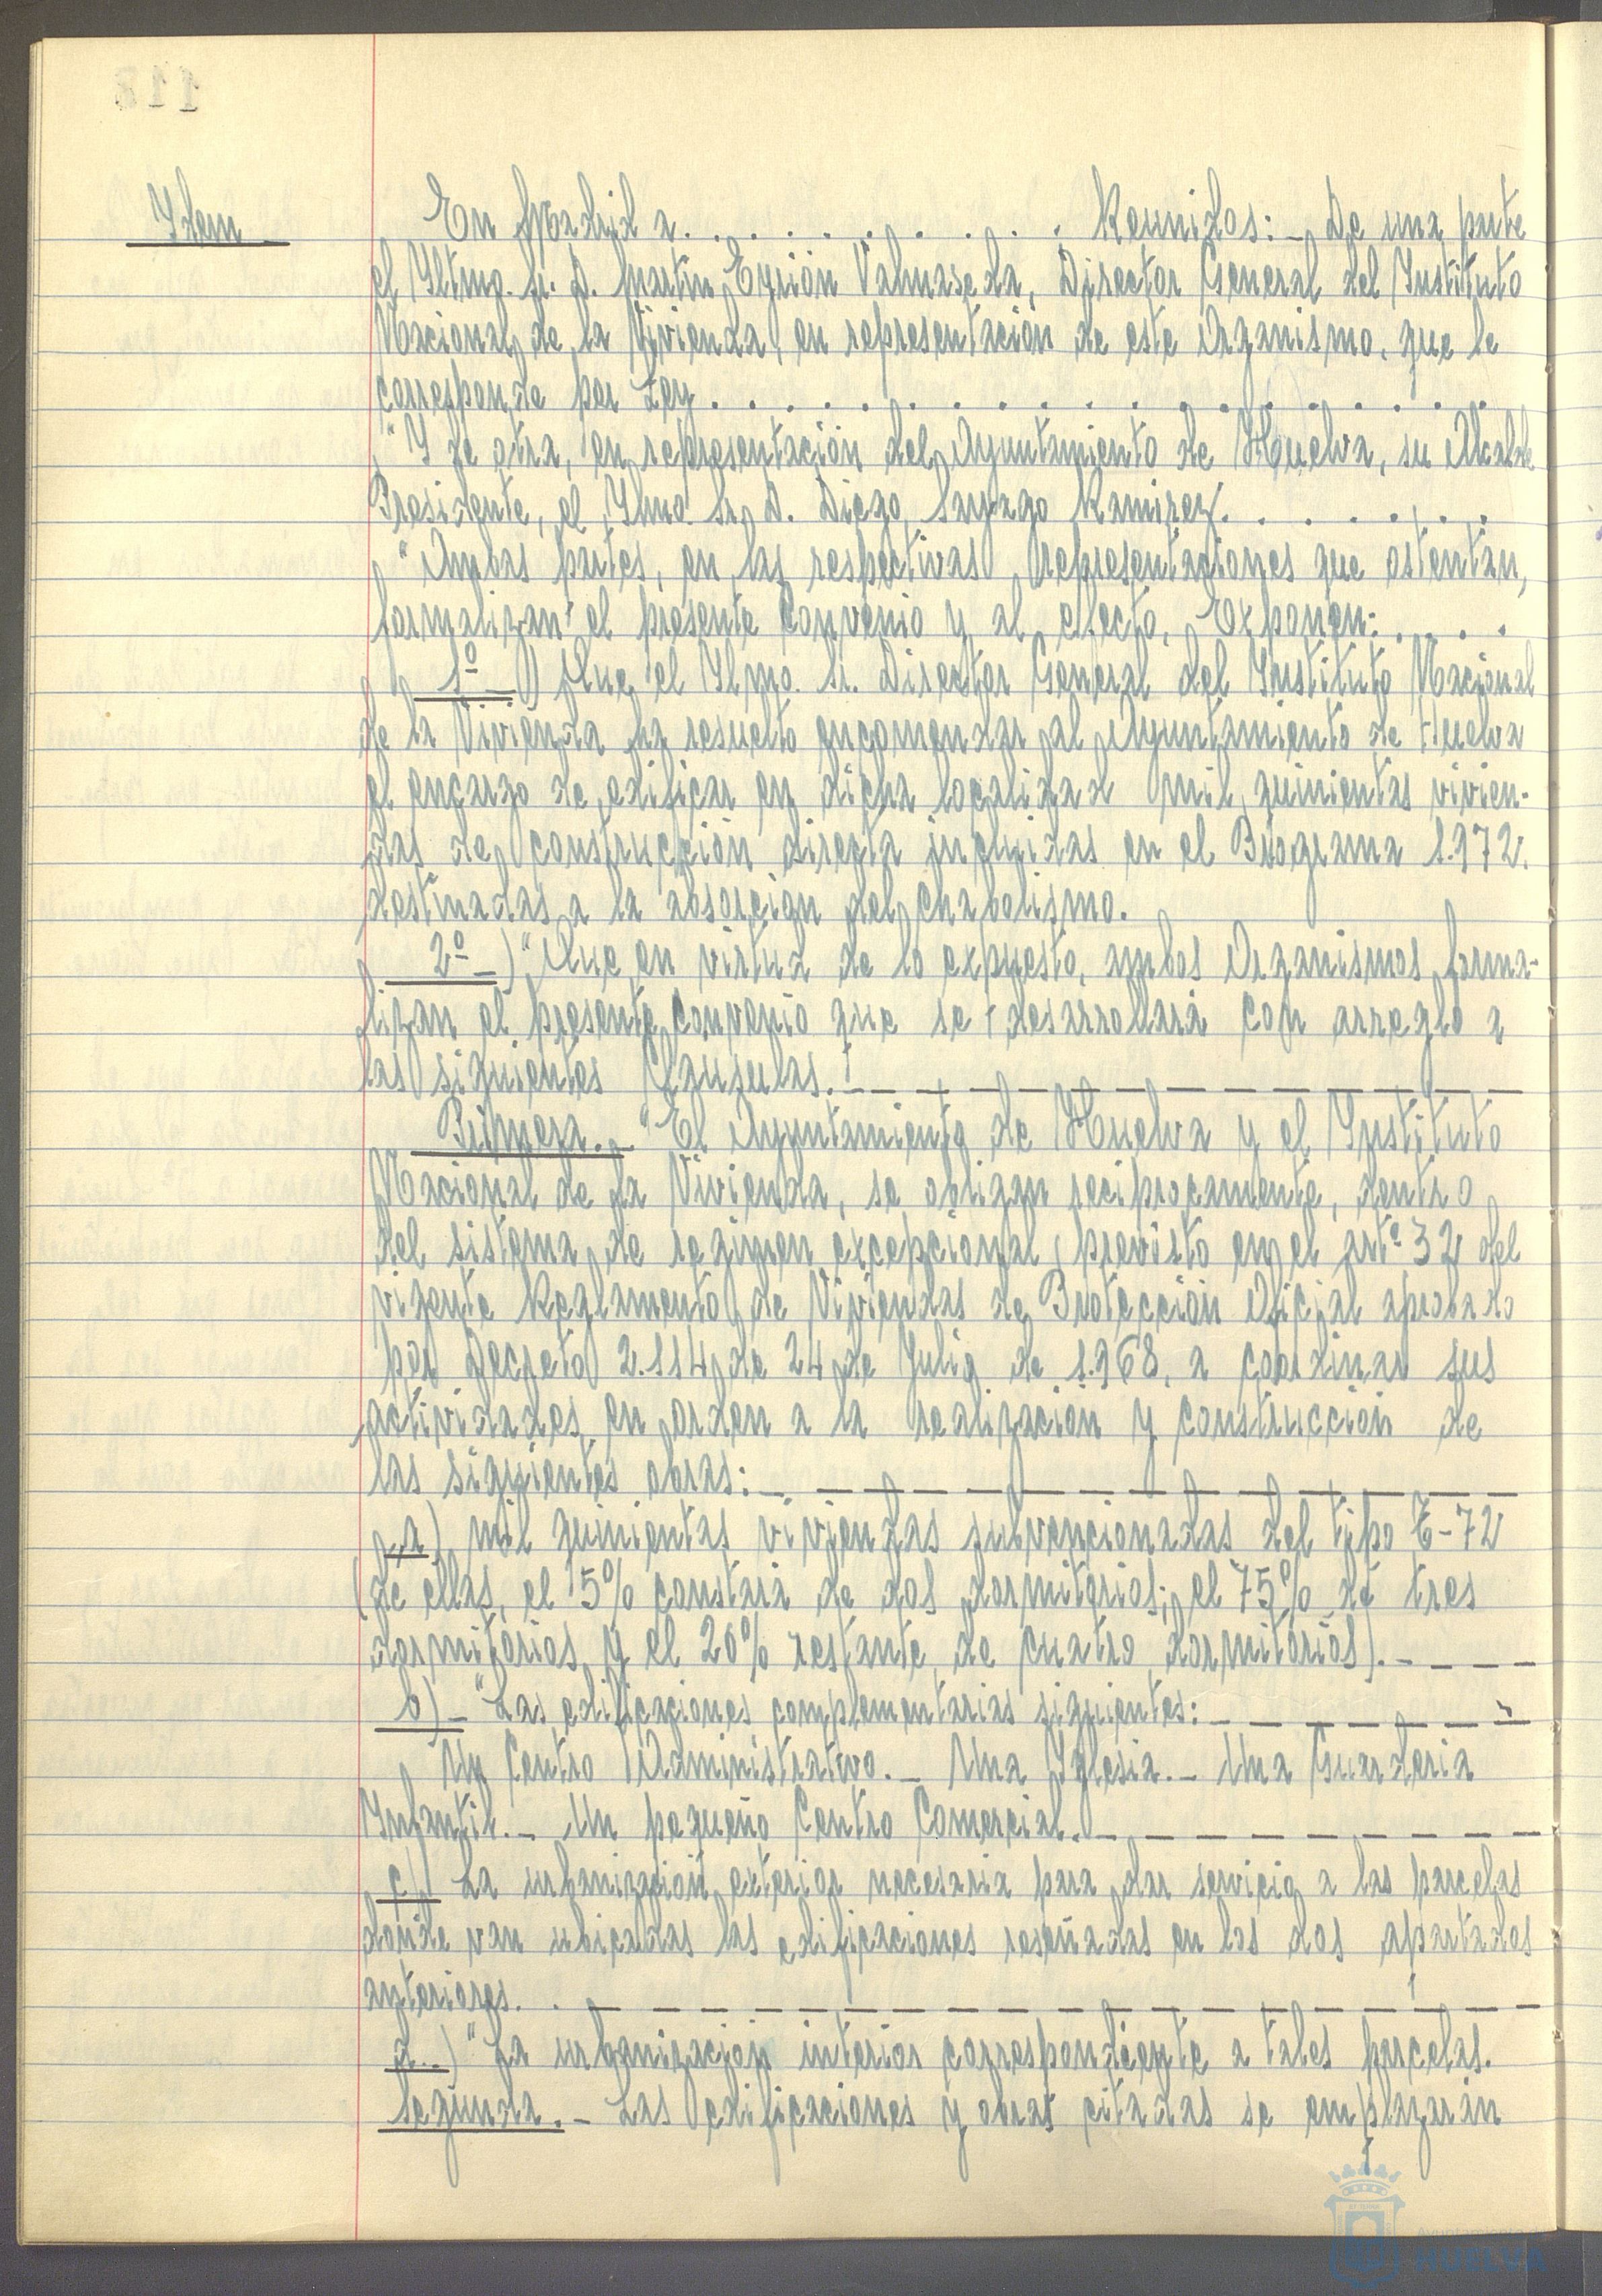 118
Idem
En Madrid a. . . . . . . . . . Reunidos: _ De una parte
el Iltmo. Sr. D. Martín Eyrión Valmaseda, Director General del Instituto
Nacional de la Vivienda, en representación de este Organismo, que le
corresponde por Ley . . . . . . . . . . . . . . . . . . .
"Y de otra, en representación del Ayuntamiento de Huelva, su Alcalde
Presidente, el Ilmo. Sr. D. Diego Sayago Ramirez. . . . . . .
"Ambas partes, en las respectivas representaciones que ostentan,
formalizan el presente Convenio y al efecto, Exponen: . . . .
1º _) Que el Ilmo. Sr. Director General del Instituto Nacional
de la Vivienda ha resuelto encomendar al Ayuntamiento de Huelva
el encargo de edificar en dicha localidad mil quinientas vivien-
das de construcción directa incluidas en el Programa 1.972.
destinadas a la absorción del chabolismo.
2º _) "Que en virtud de lo expuesto, ambos Organismos forma-
lizan el presente convenio que se desarrollará con arreglo a
las siguientes Clausulas. _ _ _ _ _ _ _ _ _ _ _
Primera. _ "El Ayuntamiento de Huelva y el Instituto
Nacional de la Vivienda, se obligan reciprocamente, dentro
del sistema de regimen excepcional previsto en el artº 32 del
vigente Reglamento de Viviendas de Protección Oficial aprobado
por Decreto 2.114 de 24 de Julio de 1.968, a coordinar sus
actividades en orden a la realización y construcción de
las siguientes obras: _ _ _ _ _ _ _ _ _ _ _
a) mil quinientas viviendas subvencionadas del tipo E-72
(de ellas, el 5% constará de dos dormitorios; el 75% de tres
dormitorios y el 20% restante de cuatro dormitorios). _ _ _ _
b) _ "Las edificaciones complementarias siguientes: _ _ _ _ _ _ _
Un Centro Administrativo. _ Una Iglesia. _ Una Guarderia
Infantil. _ Un pequeño Centro Comercial. _ _ _ _ _ _ _ _
c) La urbanización exterior necesaria para dar servicio a las parcelas
donde van ubicadas las edificaciones reseñadas en los dos apartados
anteriores. . _ _ _ _ _ _ _ _ _ _ _ _ _ _ _
d. _) "La urbanización interior correspondiente a tales parcelas.
Segunda. _ Las edificaciones y obras citadas se emplazarán
Ayuntamiento
HUELVA